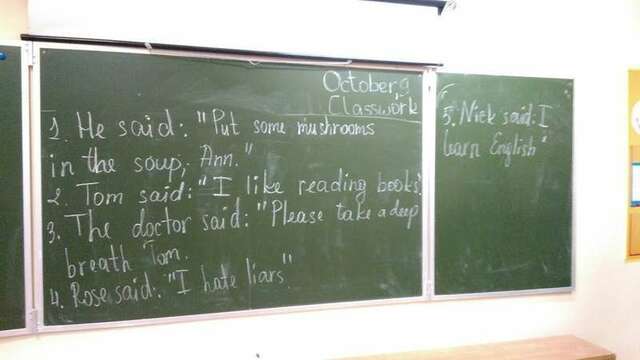 October 9
Classwork
1. He said: "Put some mushrooms
in the soup, Ann."
2. Tom said: "I like reading books".
3. The doctor said: "Please take a deep
breath Tom.
4. Rose said: "I hate liars."
5. Nick said: I
learn English"